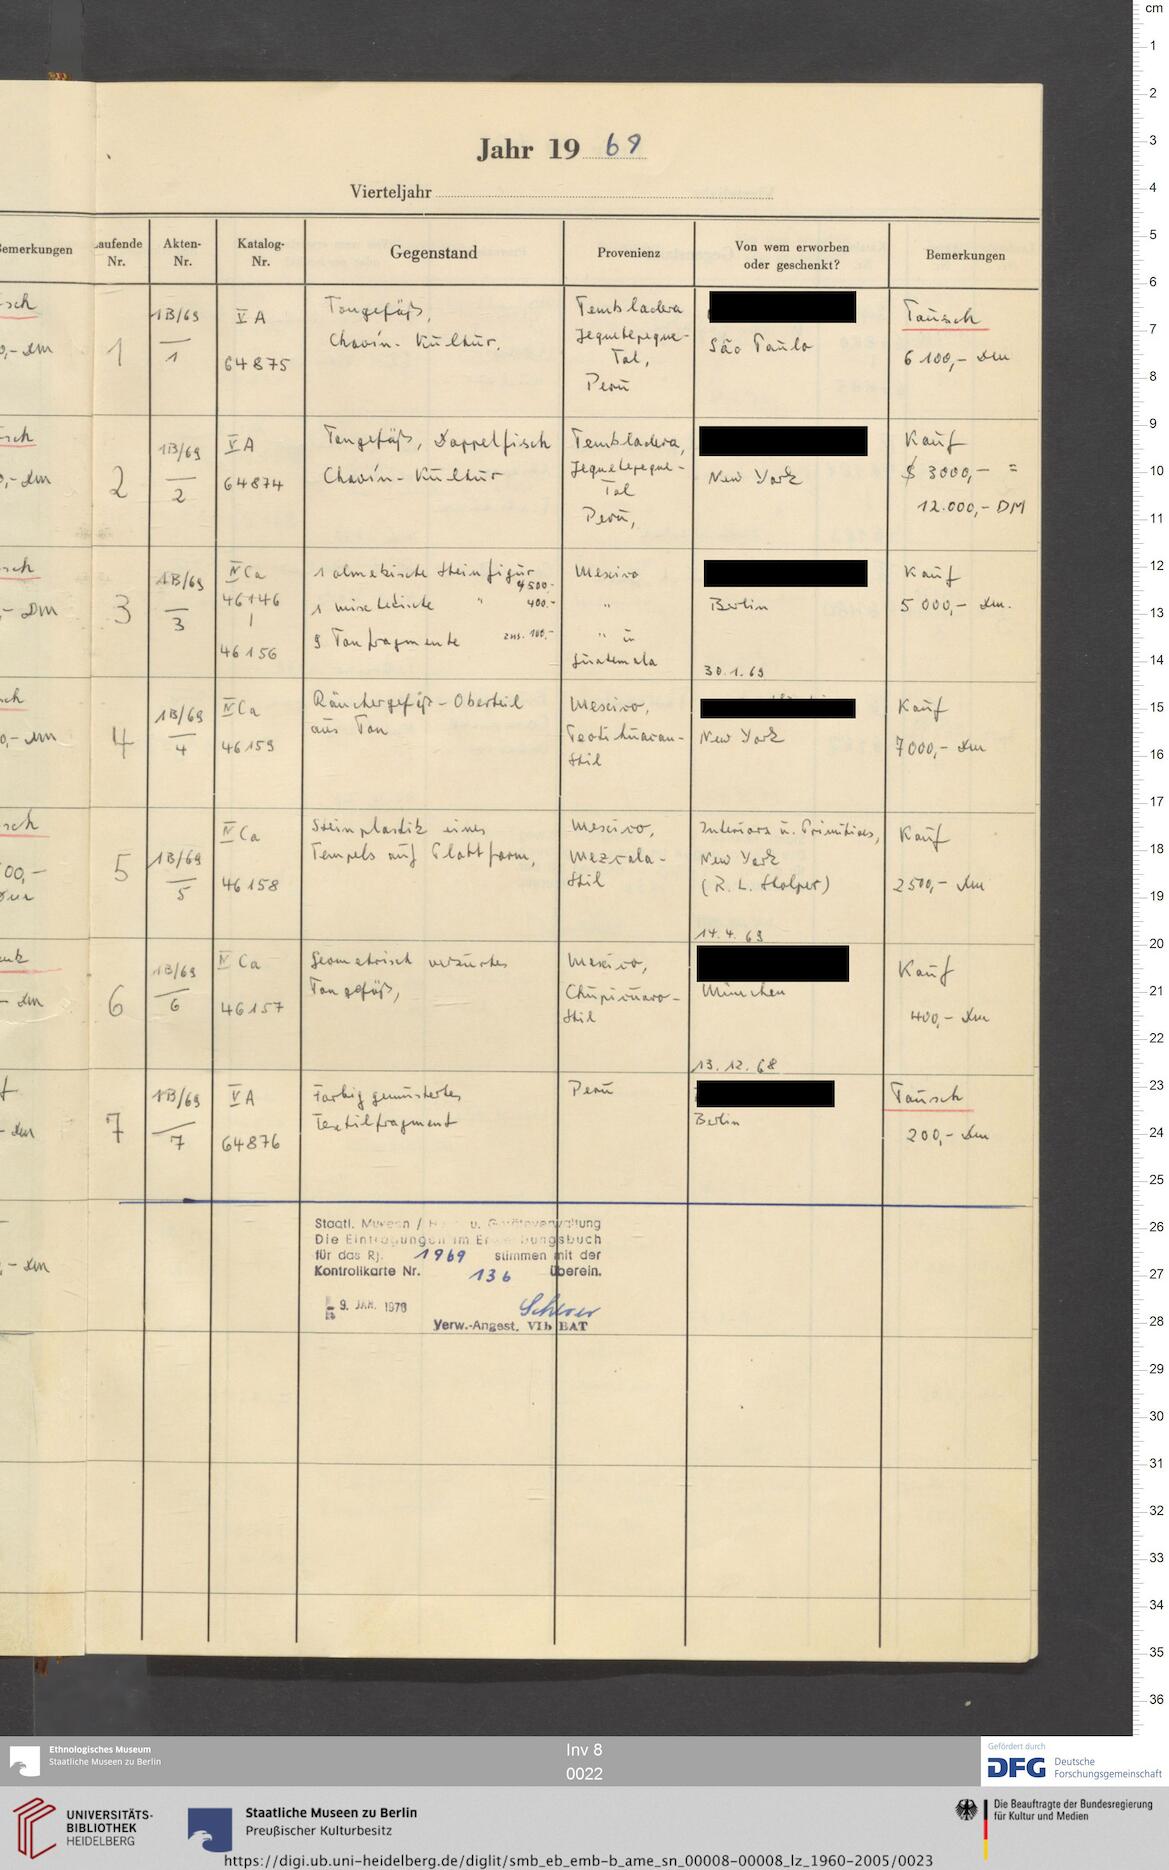 Jahr 19 69
Vierteljahr
Bemerkungen
Laufende Nr.
Akten-Nr.
Katalog-Nr.
Gegenstand
Provenienz
Von wem erworben oder geschenkt?
Bemerkungen
1
1B/69
1
V A
64875
Tongefäß,
Chavín-Kultur.
Tembladera
Jequetepeque-
Tal,
Perú
São Paulo
Tausch
6 100,- DM
2
1B/69
2
V A
64874
Tongefäß, Doppelfisch
Chavín-Kultur
Tembladera,
Jequetepeque-
Tal
Perú,
New York
Kauf
$ 3000,- =
12.000,- DM
3
1B/69
3
IV Ca
46146
|
46156
1 olmekische Steinfigur
4500.-
1 mixtekische " 400.-
9 Tonfragmente zus. 100,-
Mexico
"
" u
Guatemala
Berlin
30.1.69
Kauf
5 000,- DM.
4
1B/69
4
IV Ca
46159
Räuchergefäß-Oberteil
aus Ton
Mexico,
Teotihuacan-
Stil
New York
Kauf
7000,- DM
5
1B/69
5
IV Ca
46158
Steinplastik eines
Tempels auf Plattform,
Mexico,
Mezcala-
Stil
Interiors u. Primitives,
New York
(R. L. Stolper)
14.4.69
Kauf
2500,- DM
6
1B/69
6
IV Ca
46157
Geometrisch verziertes
Tongefäß,
Mexico,
Chupicuaro-
Stil
München
13.12.68
Kauf
400,- DM
7
1B/69
7
V A
64876
Farbig gemustertes
Textilfragment
Perú
Berlin
Tausch
200,- DM
Staatl. Museen / u. Geräteverwaltung
Die Eintragungen im Erwerbungsbuch
für das Rj. 1969 stimmen mit der
Kontrollkarte Nr. 136 überein.
9. JAN. 1970
Verw.-Angest. VIb BAT
cm
1
2
3
4
5
6
7
8
9
10
11
12
13
14
15
16
17
18
19
20
21
22
23
24
25
26
27
28
29
30
31
32
33
34
35
36
Ethnologisches Museum
Staatliche Museen zu Berlin
Inv 8
0022
Gefördert durch
DFG Deutsche
Forschungsgemeinschaft
UNIVERSITÄTS-
BIBLIOTHEK
HEIDELBERG
Staatliche Museen zu Berlin
Preußischer Kulturbesitz
Die Beauftragte der Bundesregierung
für Kultur und Medien
https://digi.ub.uni-heidelberg.de/diglit/smb_eb_emb-b_ame_sn_00008-00008_lz_1960-2005/0023